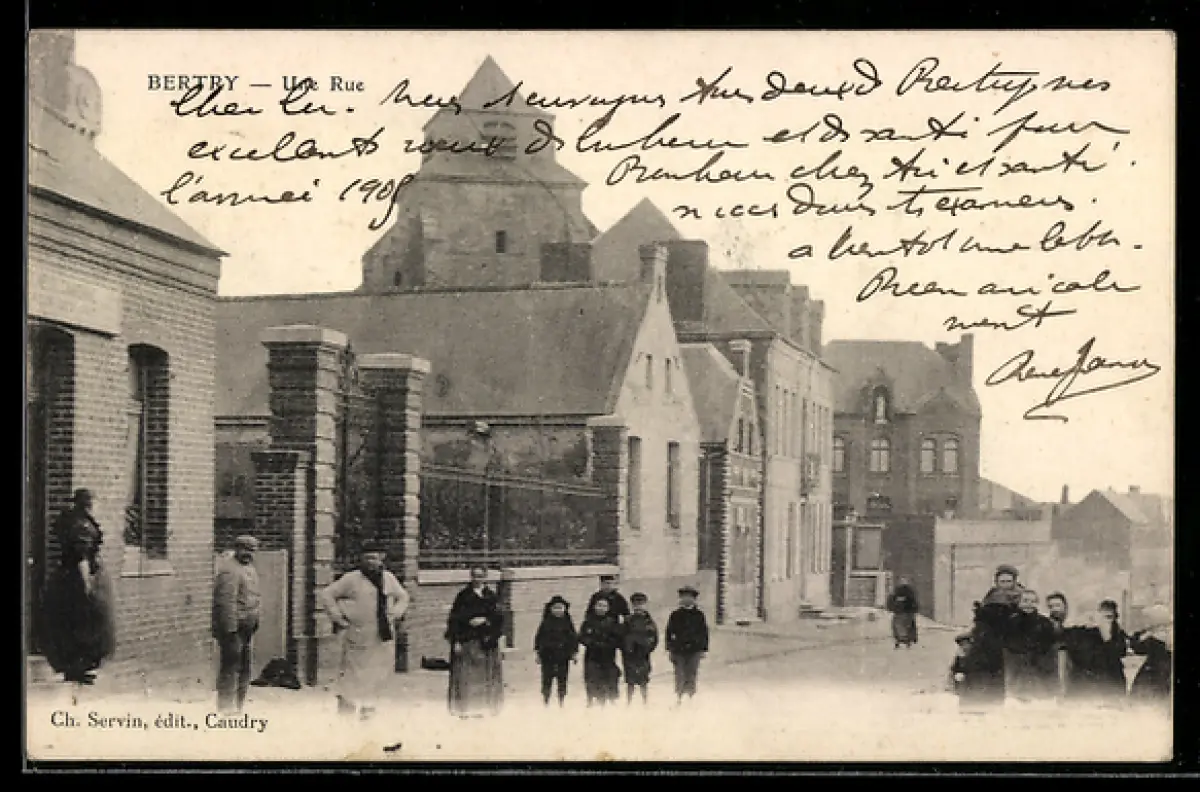 BERTRY — Une Rue
Cher
Nous t'envoyons tous deux de Bertry nos
excellents vœux de bonheur et de santé pour
l'année 1905
Bonheur chez toi et santé.
succès dans tes examens.
a bientôt une lettre.
Bien amicale
ment
Ch. Servin, édit., Caudry